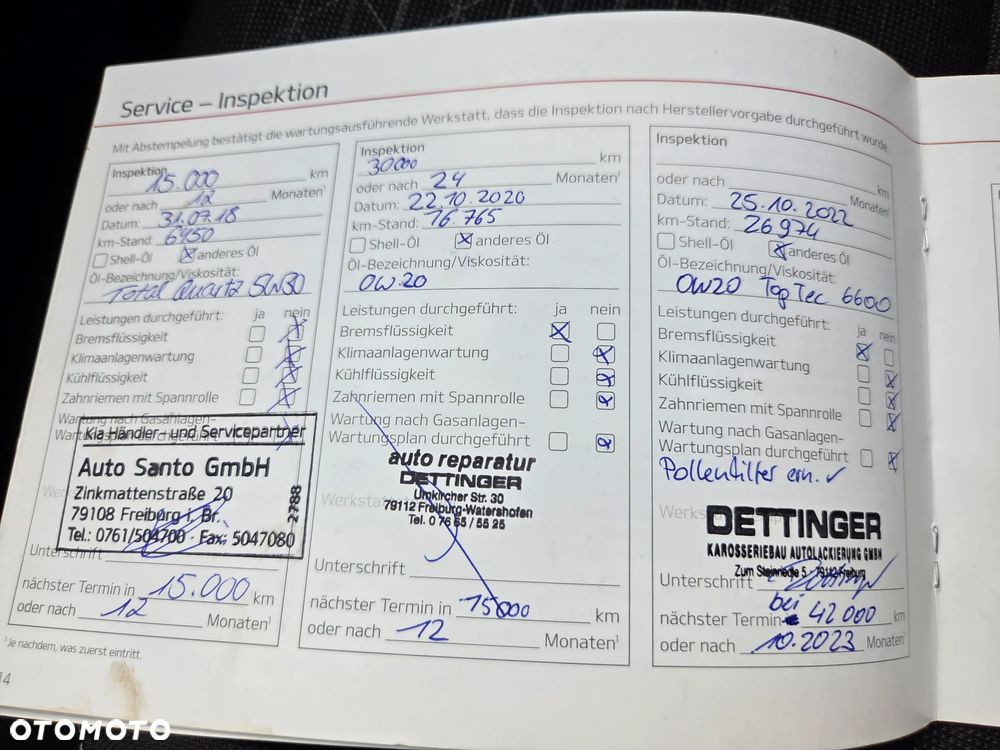 Service – Inspektion
Mit Abstempelung bestätigt die wartungsausführende Werkstatt, dass die Inspektion nach Herstellervorgabe durchgeführt wurde.
Inspektion
15.000 km
oder nach 12 Monaten¹
Datum: 31.07.18
km-Stand: 6450
Shell-Öl anderes Öl
Öl-Bezeichnung/Viskosität:
Total Quartz 5W30
Leistungen durchgeführt: ja nein
Bremsflüssigkeit
Klimaanlagenwartung
Kühlflüssigkeit
Zahnriemen mit Spannrolle
Wartung nach Gasanlagen-
Wartungsplan durchgeführt
Kia Händler - und Servicepartner
Auto Santo GmbH
Zinkmattenstraße 20
79108 Freiburg i. Br.
Tel.: 0761/504700 · Fax: 5047080
2788
Unterschrift
nächster Termin in 15.000 km
oder nach 12 Monaten¹
¹Je nachdem, was zuerst eintritt.
14
Inspektion
30000 km
oder nach 24 Monaten¹
Datum: 22.10.2020
km-Stand: 16.765
Shell-Öl anderes Öl
Öl-Bezeichnung/Viskosität:
0W.20
Leistungen durchgeführt: ja nein
Bremsflüssigkeit
Klimaanlagenwartung
Kühlflüssigkeit
Zahnriemen mit Spannrolle
Wartung nach Gasanlagen-
Wartungsplan durchgeführt
auto reparatur
DETTINGER
Umkircher Str. 30
79112 Freiburg-Watershofen
Tel. 0 76 65 / 55 25
Unterschrift
nächster Termin in 15000 km
oder nach 12 Monaten¹
Inspektion
km
oder nach Monaten¹
Datum: 25.10.2022
km-Stand: 26974
Shell-Öl anderes Öl
Öl-Bezeichnung/Viskosität:
0W20 Top Tec 6600
Leistungen durchgeführt: ja nein
Bremsflüssigkeit
Klimaanlagenwartung
Kühlflüssigkeit
Zahnriemen mit Spannrolle
Wartung nach Gasanlagen-
Wartungsplan durchgeführt
Pollenfilter ern. ✓
DETTINGER
KAROSSERIEBAU AUTOLACKIERUNG GMBH
Zum Steinriedle 5 - 79112 Freiburg
Unterschrift
bei
nächster Termin 42 000 km
oder nach 10.2023 Monaten¹
OTOMOTO